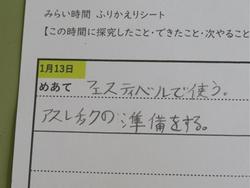 みらい時間 ふりかえりシート
【この時間に探究したこと・できたこと・次やること
1月13日
めあて フェスティバルで使う。
アスレチックの準備をする。